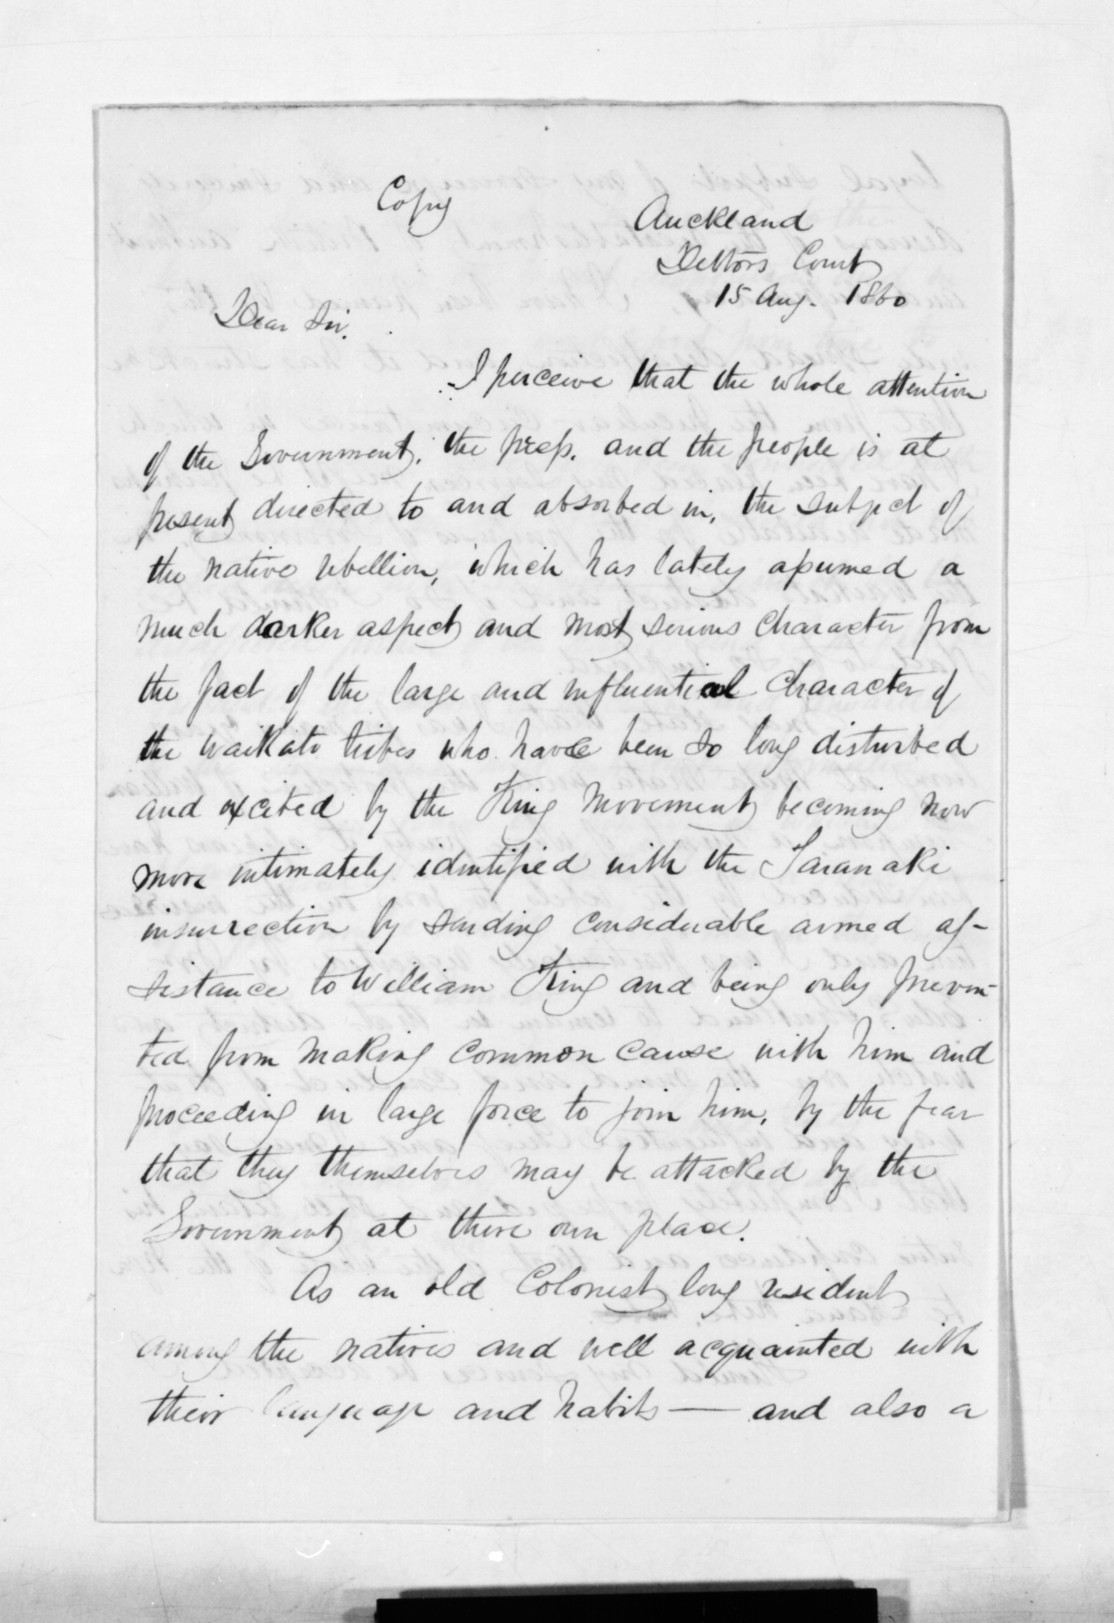 Copy
Auckland
Debtors Court
15 Aug. 1860
Dear Sir.
I perceive that the whole attention
of the Government, the press, and the people is at
present directed to and absorbed in, the subject of
the native rebellion, which has lately assumed a
much darker aspect and most serious character from
the fact of the large and influential character of
the Waikato tribes who have been so long disturbed
and excited by the King movement becoming now
more intimately identified with the Taranaki
insurrection by sending considerable armed as-
sistance to William King and being only preven-
ted from making common cause with him and
proceeding in large force to join him, by the fear
that they themselves may be attacked by the
Government at there own place.
As an old Colonist long resident
among the natives and well acquainted with
their language and habits — and also a